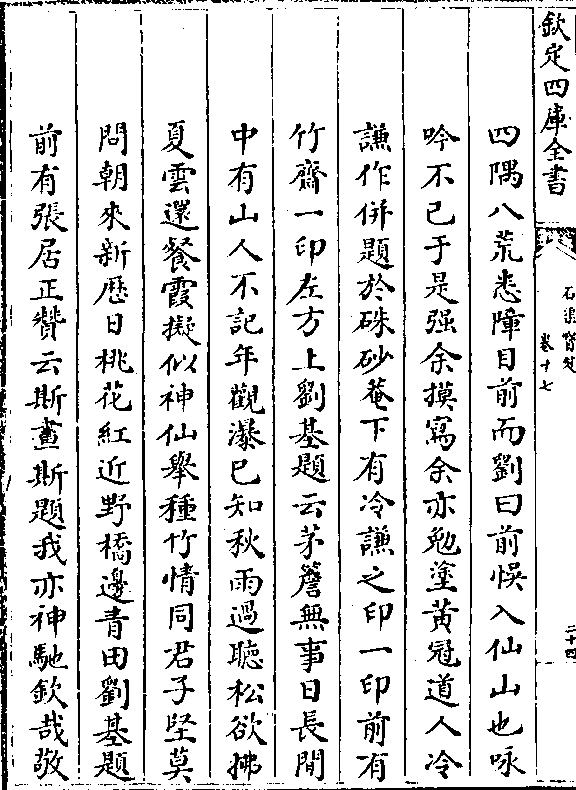 欽定四庫全書
石渠寶笈
卷十七
二十四
四隅八荒悉障目前而劉曰前悞入仙山也咏
吟不已于是强余摸寫余亦勉塗黄冠道人冷
謙作併題於硃砂菴下有冷謙之印一印前有
竹齋一印左方上劉基題云茅簷無事日長閒
中有山人不記年觀瀑已知秋雨過聽松欲拂
夏雲還餐霞擬似神仙舉種竹情同君子堅莫
問朝來新歴日桃花紅近野橋邊青田劉基題
前有張居正贊云斯畫斯題我亦神馳欽哉敬